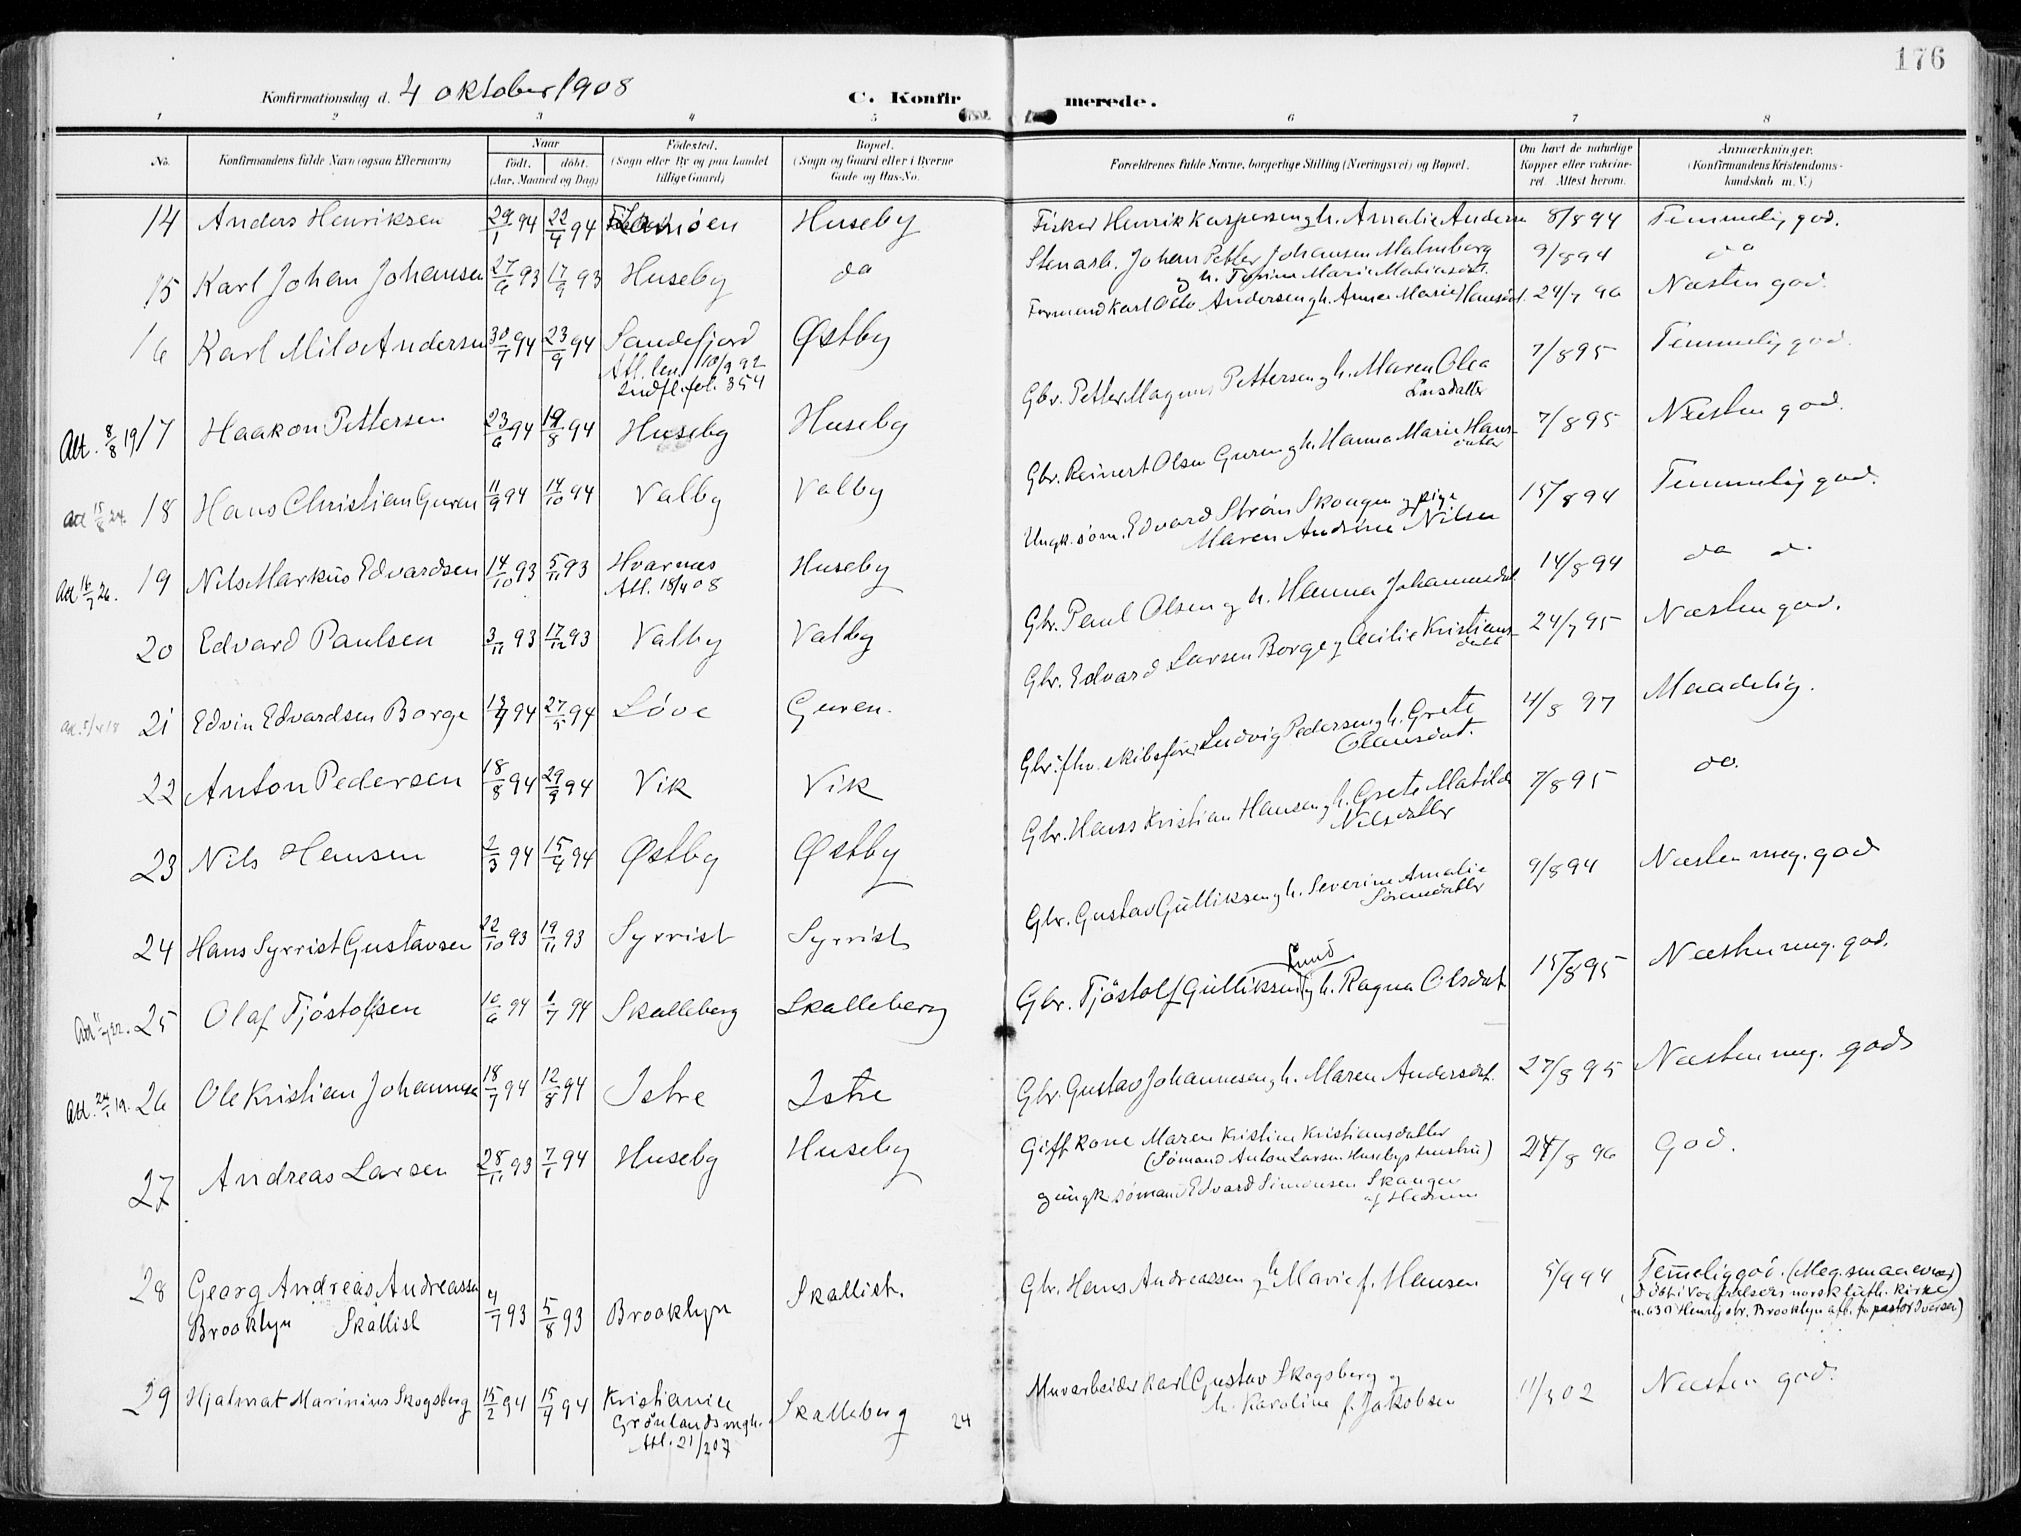 176
Konfirmationsdag d. 4 oktober 1908 C. Konfirmerede.
1 2 3 4 5 6 7 8
No. Konfirmandens fulde Navn (ogsaa Efternavn) Naar født. døbt. (Aar, Maaned og Dag) Fødested. (Sogn eller By og paa Landet tillige Gaard) Bopæl. (Sogn og Gaard eller i Byerne Gade og Hus-No. Forældrenes fulde Navne, borgerlige Stilling (Næringsvei) og Bopæl. Om havt de naturlige Kopper eller vaccineret. Attest herom. Anmærkninger. (Konfirmandens Kristendomskundskab m. V.)
14 Anders Henriksen 29/1 94 22/4 94 Huseby Fisker Henrik Kaspersen og h. Amalie Anderse 8/8 94 Temmelig god.
15 Karl Johan Johansen 27/6 93 17/9 93 Huseby do Stenarb. Johan Petter Johansen Malmberg 9/8 94 do
og h. Torine Marie Matiasdat.
16 Karl Milo Andersen 30/7 94 23/9 94 Sandefjord Østby Formand Karl Otto Andersen og h. Anna Marie Hansdat. 24/7 96 Næsten god.
Att. 10/9 92
Indfl. fol. 354
Att. 8/8 19 17 Haakon Pettersen 23/6 94 19/8 94 Huseby Huseby Gbr. Petter Magnus Pettersen og h. Maren Olea 7/8 95 Temmelig god.
Larsdatter
Att 15/8 24. 18 Hans Christian Guren 11/9 94 14/10 94 Valby Valby Gbr. Reinert Olsen Guren og h. Hanna Marie Hans- 7/8 95 Næsten god.
datter
Att 16/7 26. 19 Nils Markus Edvardsen 14/10 93 5/11 93 Hvarnes Huseby Ungk. søm. Edvard Strøm Skaugen og pige 15/8 94 Temmelig god.
Att. 18/4 08 Maren Andrine Nilsen
20 Edvard Paulsen 3/11 93 17/12 93 Valby Valby Gbr. Paul Olsen og h. Hanna Johannesdat 14/8 94 do d.
21 Edvin Edvardsen Borge 94 27/5 94 Løve Guren. Gbr. Edvard Larsen Borge og Cecilie Kristians- 24/7 95 Næsten god.
datt
22 Anton Pedersen 18/8 94 29/9 94 Vik Vik Gbr. fhv. skibsfører Ludvig Pedersen og h. Grete 4/8 97 Maadelig.
Olausdat.
23 Nils Hansen 2/3 94 15/4 94 Østby Østby Gbr. Hans Kristian Hansen og h. Grete Matilde 7/8 95 do.
Nilsdatter
24 Hans Syrrist Gustavsen 22/10 93 19/11 93 Syrrist Syrrist Gbr. Gustav Gulliksen og h. Severine Amalie 9/8 94 Næsten meg. god
Sørensdatter
Att 22. 25 Olaf Tjøstolfsen 10/6 94 1/7 94 Skalleberg Skalleberg Gbr. Tjøstolf Gulliksen Lund og h. Ragna Olsdat 15/8 95 Næsten meg. god.
Att. 24/1 19. 26 Ole Kristian Johannesen 18/7 94 12/8 94 Istre Istre Gbr. Gustav Johannesen og h. Maren Andersdat. 27/8 95 Næsten meg. god
27 Andreas Larsen 28/11 93 7/1 94 Huseby Huseby Gift kone Maren Kristine Kristiansdatter 24/8 96 God.
(Sømand Anton Larsen Husebys hustru)
og ungk. sømand Edvard Simonsen Skaugen
af Hedrum
28 Georg Andreas Andreassen 4/7 93 5/8 93 Brooklyn Skallist. Gbr. Hans Andreassen og h Marie f. Hansen 5/9 94 Temelig god. (Meg. smaa evner)
Brooklyn Skallist Døbt i Vor Frelsers norsk luth. kirke
n. 630 Henry str. Brooklyn af pastor Iversen)
29 Hjalmar Marinius Skogsberg 15/2 94 15/4 94 Kristiania Skalleberg 24 Murarbeider Karl Gustav Skogsberg og 02 Næsten god.
Grønlands mgh. h. Karoline f. Jakobsen
Att. 21/2 07